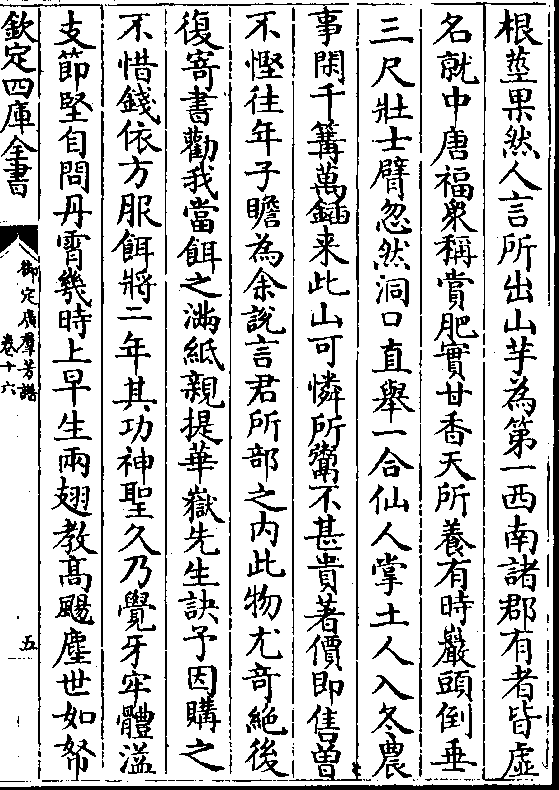 根莖果然人言所出山芋為第一西南諸郡有者皆虛
名就中唐福衆稱賞肥實甘香天所養有時巖頭倒垂
三尺壯士臂忽然洞口直舉一合仙人掌土人入冬農
事閑千篝萬鍤来此山可憐所鬻不甚貴著價即售曽
不慳往年子瞻為余說言君所部之内此物尤竒絶後
復寄書勸我當餌之滿紙親提華嶽先生訣予因購之
不惜錢依方服餌將二年其功神聖久乃覺牙牢體溢
支節堅自問丹霄幾時上早生兩翅教髙颺塵世如帑
欽定四庫全書
御定廣羣芳譜
卷十六
五